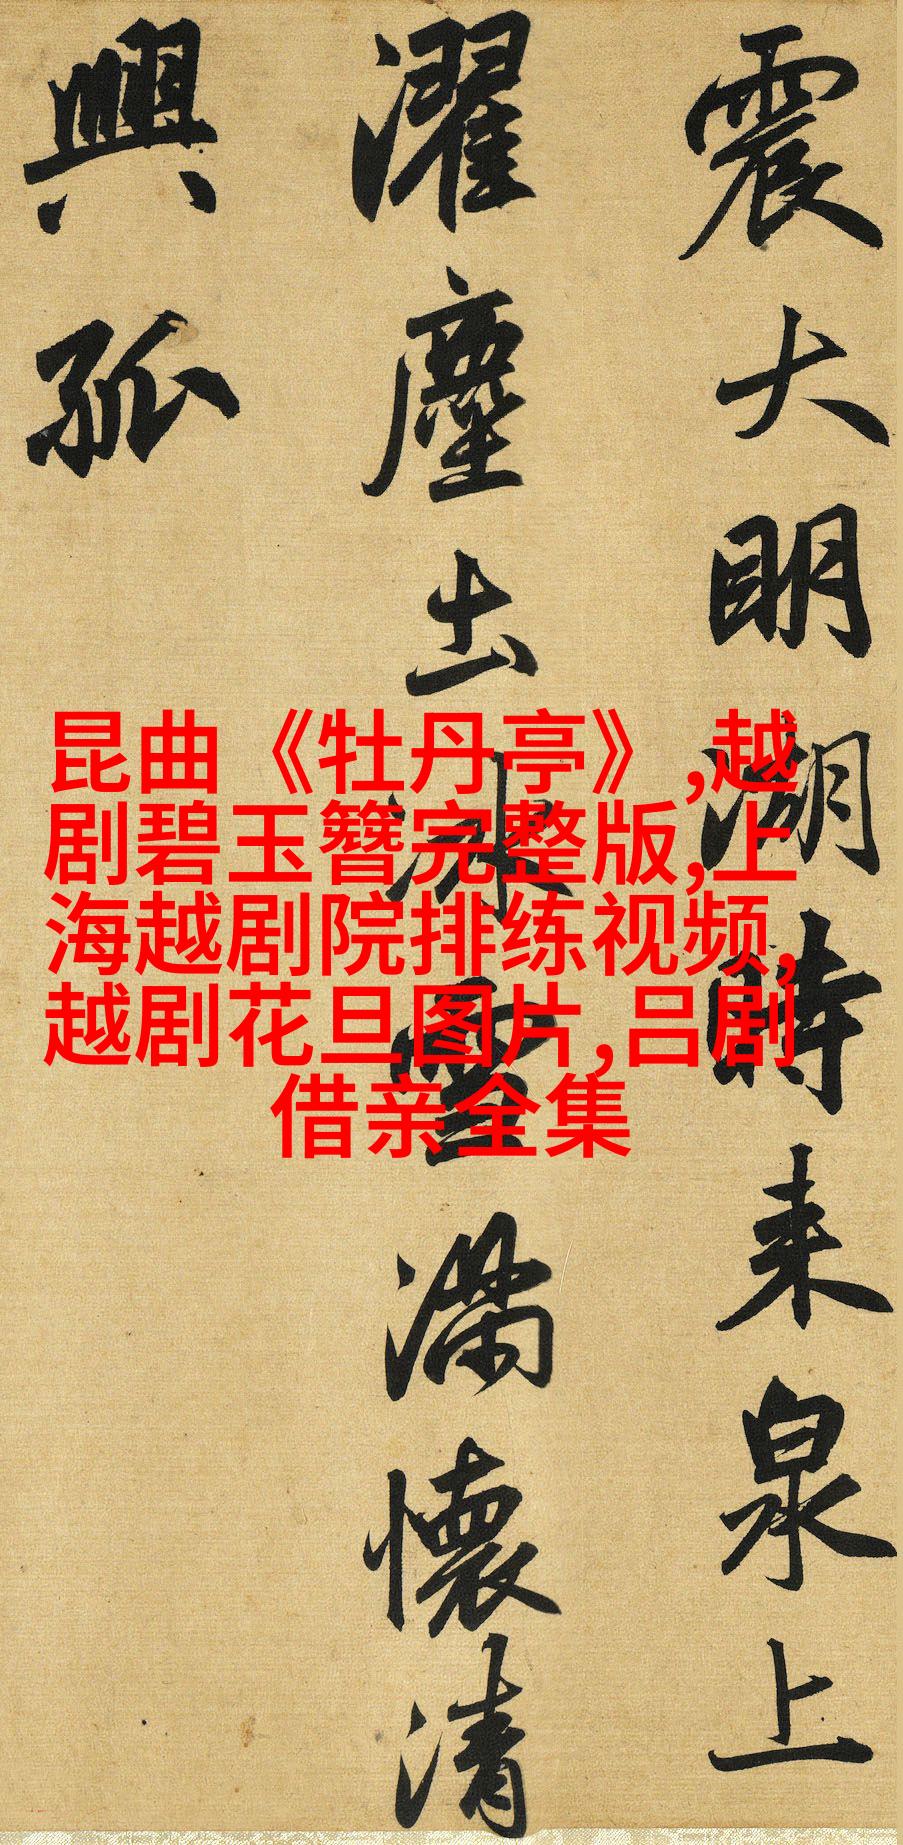 震大明湖時来泉上
濯塵土冰雪滿懷清
興孤
昆曲《牡丹亭》,越
剧碧玉簪完整版,上
海越剧院排练视频,
越剧花旦图片,吕剧
借亲全集